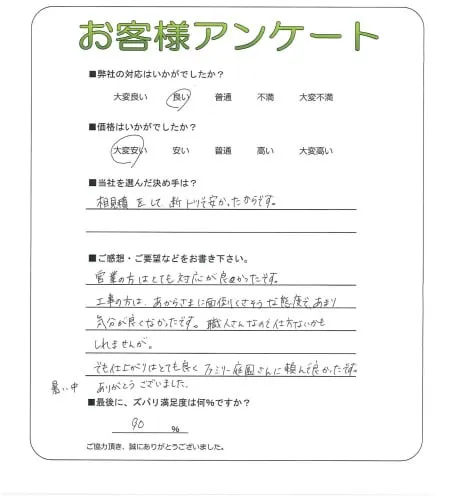 お客様アンケート
■弊社の対応はいかがでしたか？
大変良い 良い 普通 不満 大変不満
■価格はいかがでしたか？
大変安い 安い 普通 高い 大変高い
■当社を選んだ決め手は？
相見積をして断トツで安かったからです。
■ご感想・ご要望などをお書き下さい。
営業の方はとても対応が良かったです。
工事の方は、あからさまに面倒くさそうな態度で、あまり
気分が良くなかったです。職人さんなので仕方ないかも
しれませんが。
でも仕上がりはとても良くファミリー庭園さんに頼んで良かったです。
暑い中 ありがとうございました。
■最後に、ズバリ満足度は何％ですか？
90 ％
ご協力頂き、誠にありがとうございました。